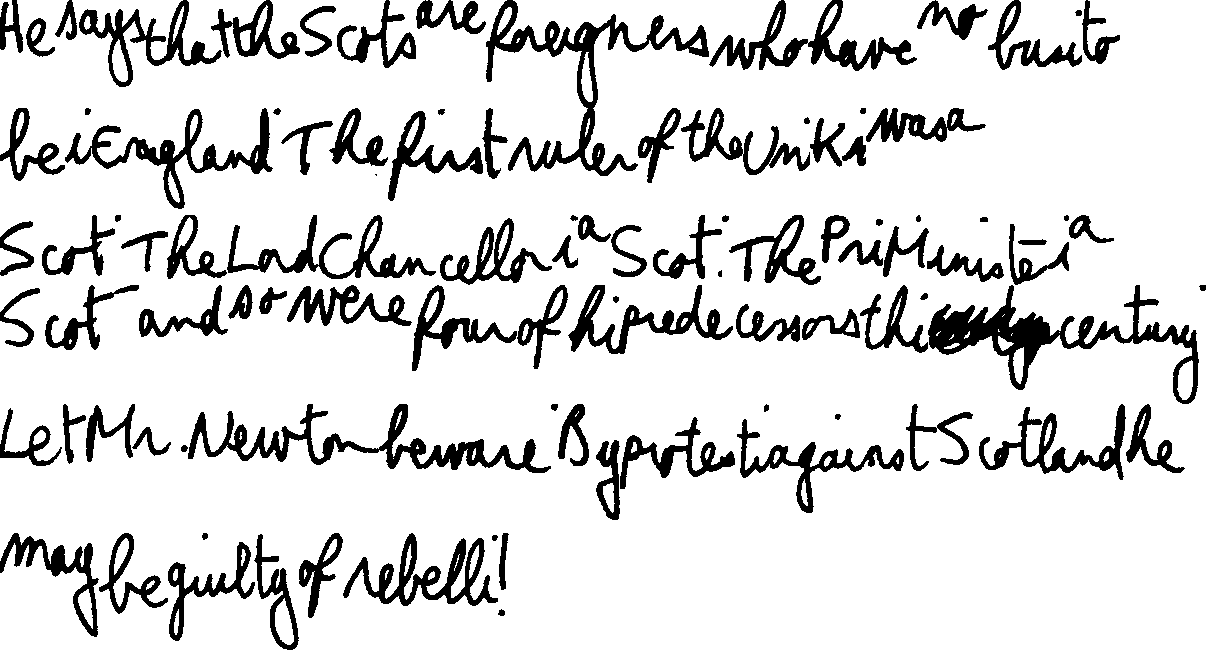 He says that the Scots are foreigners who have no busi to
be i England. The first ruler of the Uni Ki was a
Scot. The Lord Chancellor i a Scot. The Pri Ministe i a
Scot and so were four of hi predecessors thi century.
Let Mr. Newton beware. By protesti against Scotland he
may be guilty of rebelli!